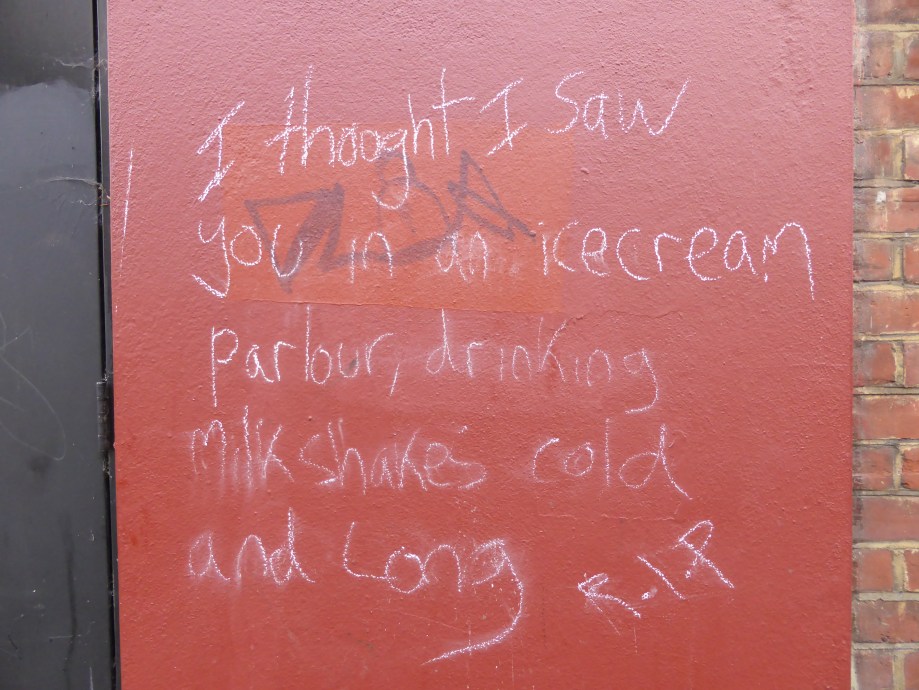 I thooght I Saw
you in an icecream
parlour, drinking
Milkshakes cold
and Long